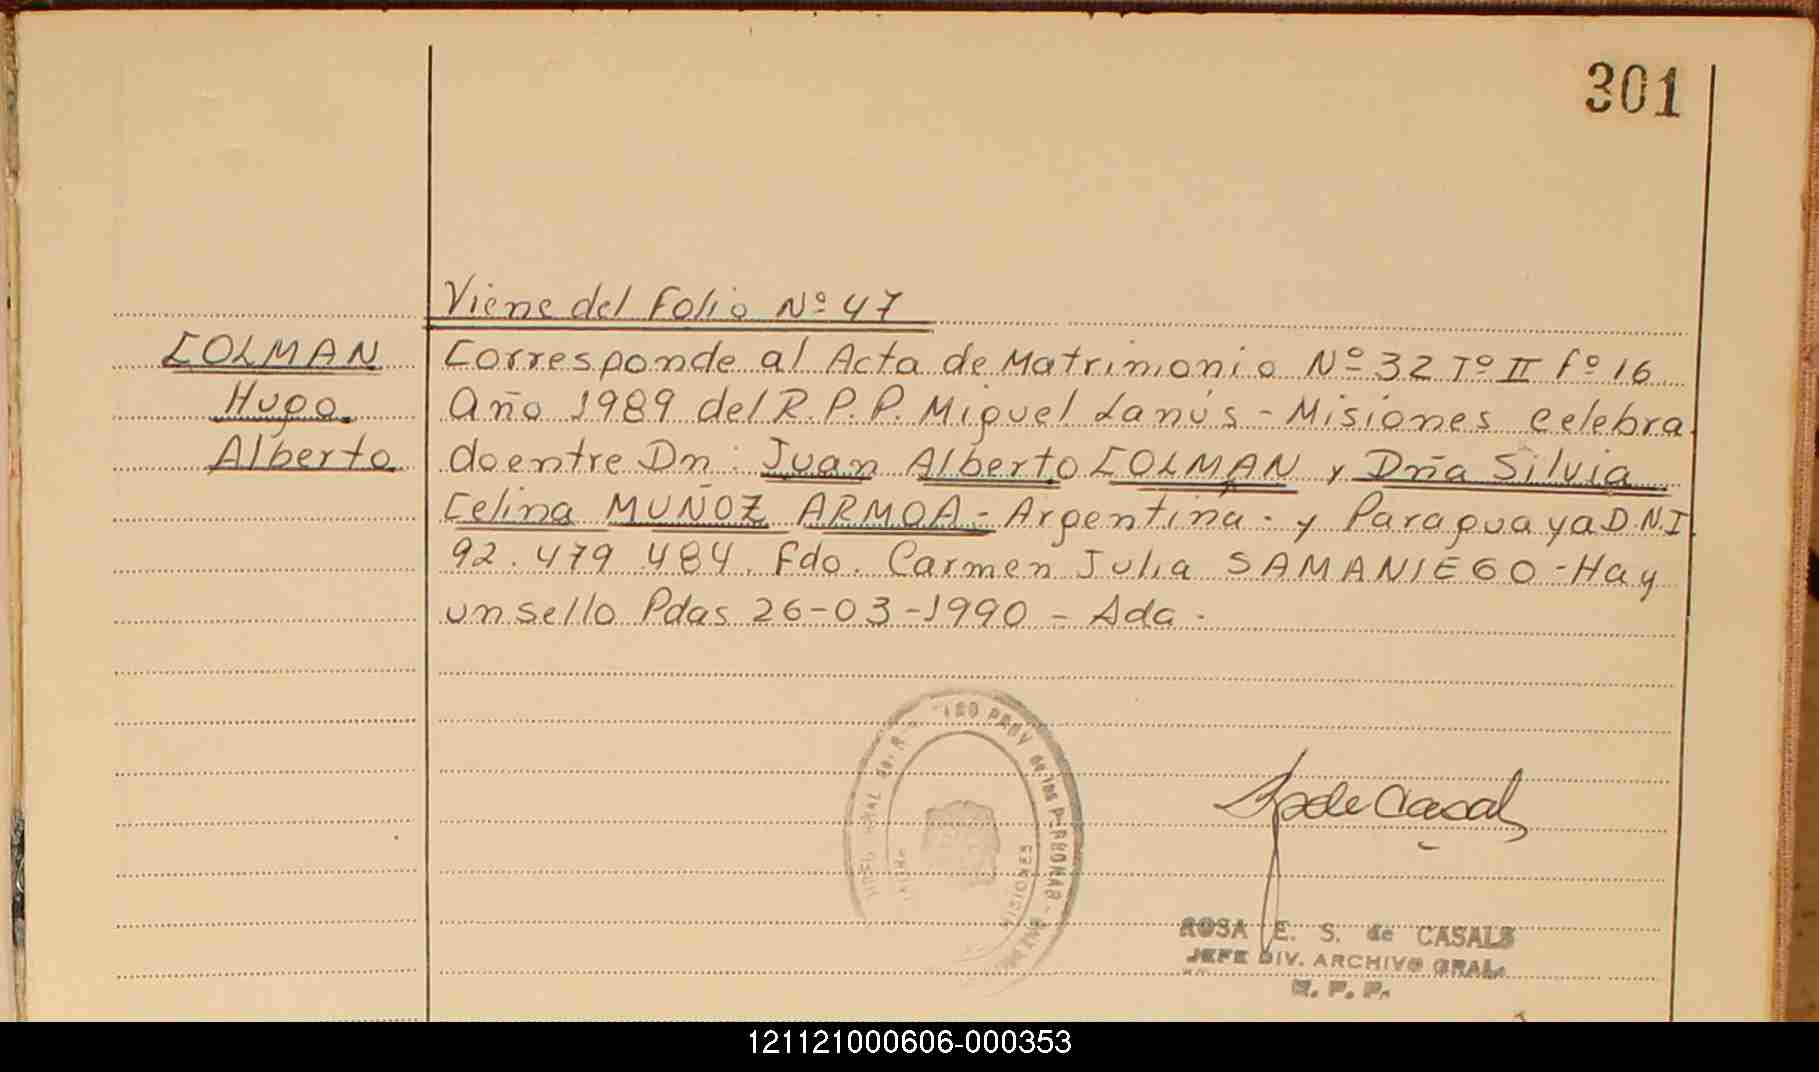 301
Viene del Folio Nº 47
COLMAN
Hugo
Alberto
Corresponde al Acta de Matrimonio Nº 32 Tº II Fº 16
Año 1989 del R.P.P. Miguel Lanús - Misiones celebra
do entre Dn: Juan Alberto COLMAN y Dña Silvia
Celina MUÑOZ ARMOA - Argentina - y Paraguaya D.N.I
92.479.484. Fdo. Carmen Julia SAMANIEGO - Hay
un sello Pdas 26-03-1990 - Ada.
MISIONES
de Casals
ROSA E. S. de CASALS
JEFE DIV. ARCHIVO GRAL.
R. P. P.
121121000606-000353